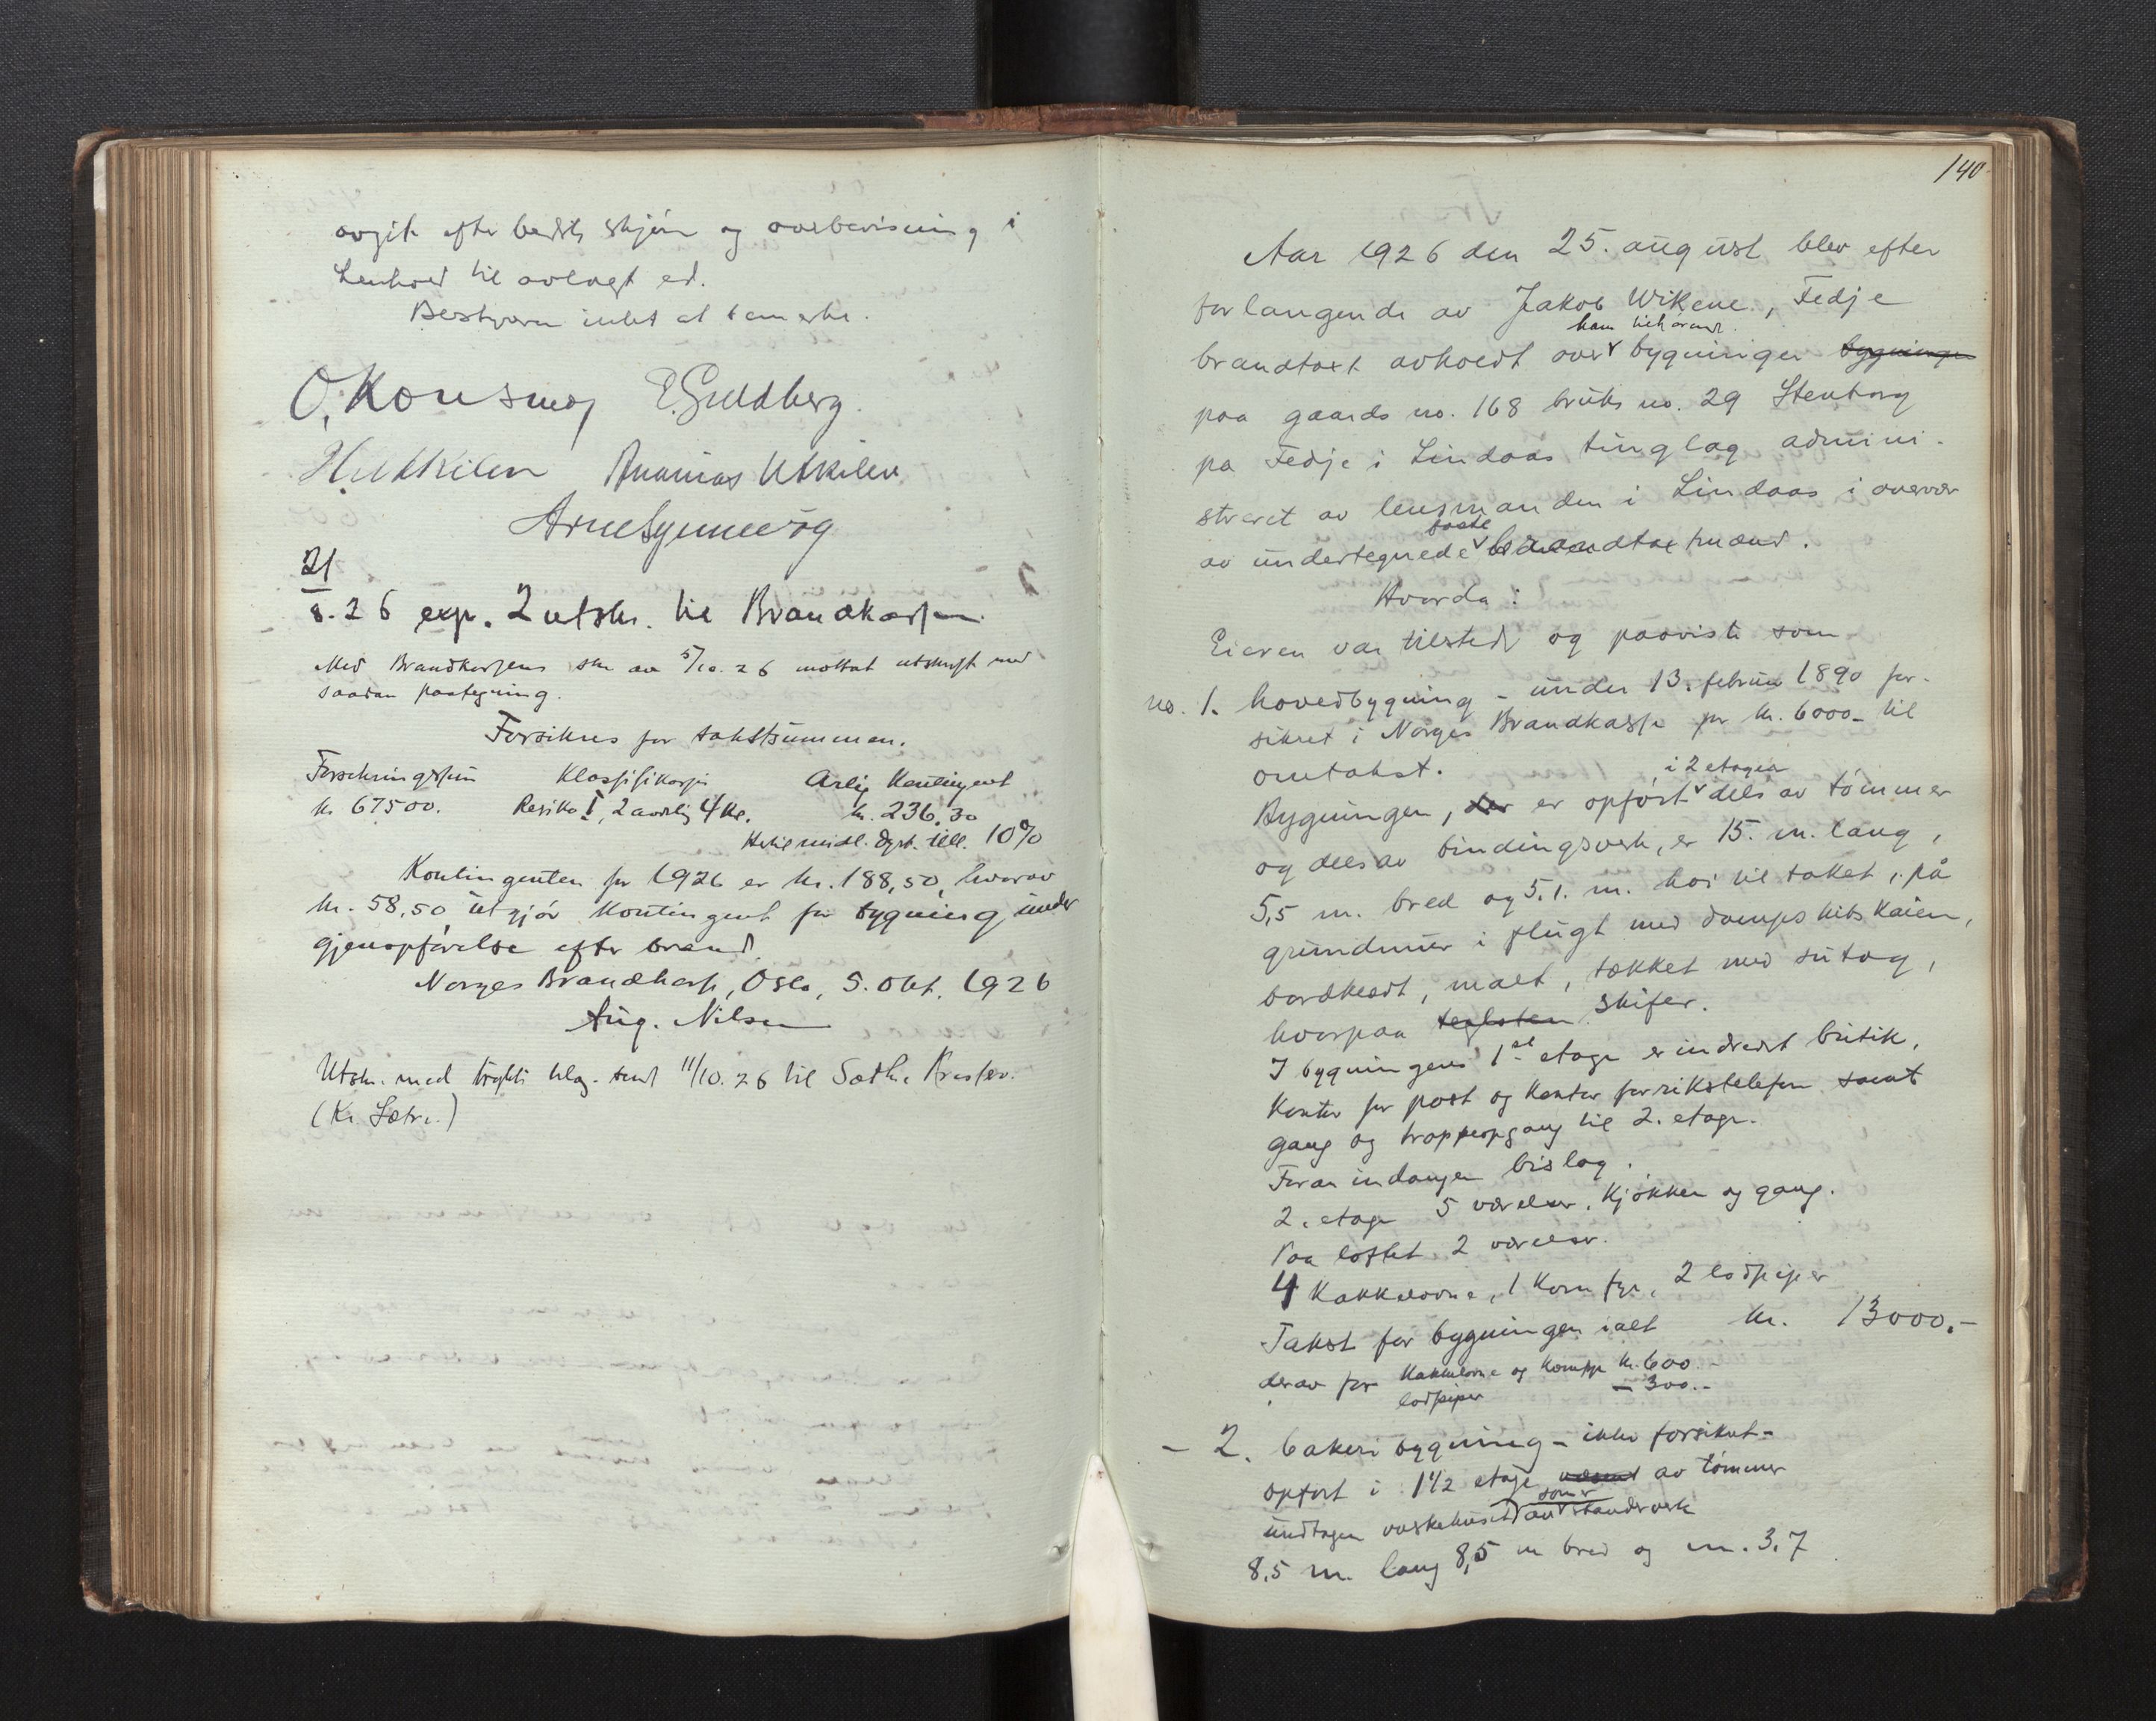 avgit efter bedste skjøn og overbevisning i
henhold til avlagt ed.
Bestyreren intet at bemerke.
O. Konsmo E. Guldberg.
H. Utkilen Ananias Utkilen
Arne Synnevåg
21/8.26 exp. 2 utskr. til Brandkassen
Med Brandkassens skr av 5/10.26 mottat utskrift med
saadan paategning.
Forsikres for takstsummen.
Forsikringssum Klassifikasjon Årlig Kontingent
kr 67500. Resiko I, 2 4 kl. kr. 236,30
till. 10%
Kontingenten for 1926 er kr. 188,50, hvorav
kr. 58,50 utgjør kontingent for bygning under
gjenopførelse efter brand.
Norges Brandkasse, Oslo, 5. Okt. 1926
Aug. Nilsen
Utskr. med bilag sendt 11/10.26 til
(Kr. Sætre.)
140
Aar 1926 den 25. august blev efter
forlangende av Jakob Wikene, Fedje
ham tilhørende
brandtaxt avholdt over bygninger bygninger
paa gaards no. 168 bruks no. 29 Stenborg
pa Fedje i Lindaas tinglag admini-
streret av lensmanden i Lindaas i overvær
faste
av undertegnede brandtaxtmænd.
Hvorda:
Eieren var tilstede og paaviste som
no. 1. hovedbygning - under 13. februar 1890 for-
sikret i Norges Brandkasse for kr. 6000 - til
omtakst.
i 2 etager
Bygningen, der er opført dels av tømmer
og dels av bindingsverk, er 15. m. lang,
5,5 m. bred og 5.1. m. høi til taket, på
grundmur i flugt med dampskibskaien,
bordklædt, malt, tækket med sutag,
hvorpaa teglsten skifer.
I bygningens 1ste etage er indredet butik,
kontor for post og kontor for rikstelefon samt
gang og trappeopgang til 2. etage.
Foran indgangen bislag.
2. etage 5 værelser, kjøkken og gang.
Paa loftet 2 værelser.
4 kakkelovne, 1 komfyr, 2 lodpiper
Takst for bygningen ialt kr. 13000.-
derav for kakkelovne og komfyr kr. 600.
lodpiper - 300.-
- 2. bakeribygning - ikke forsikret -
opført i 1 1/2 etage av tømmer
som er
undtagen vaskehuset av standverk
8,5 m. lang 8,5 m bred og m. 3,7